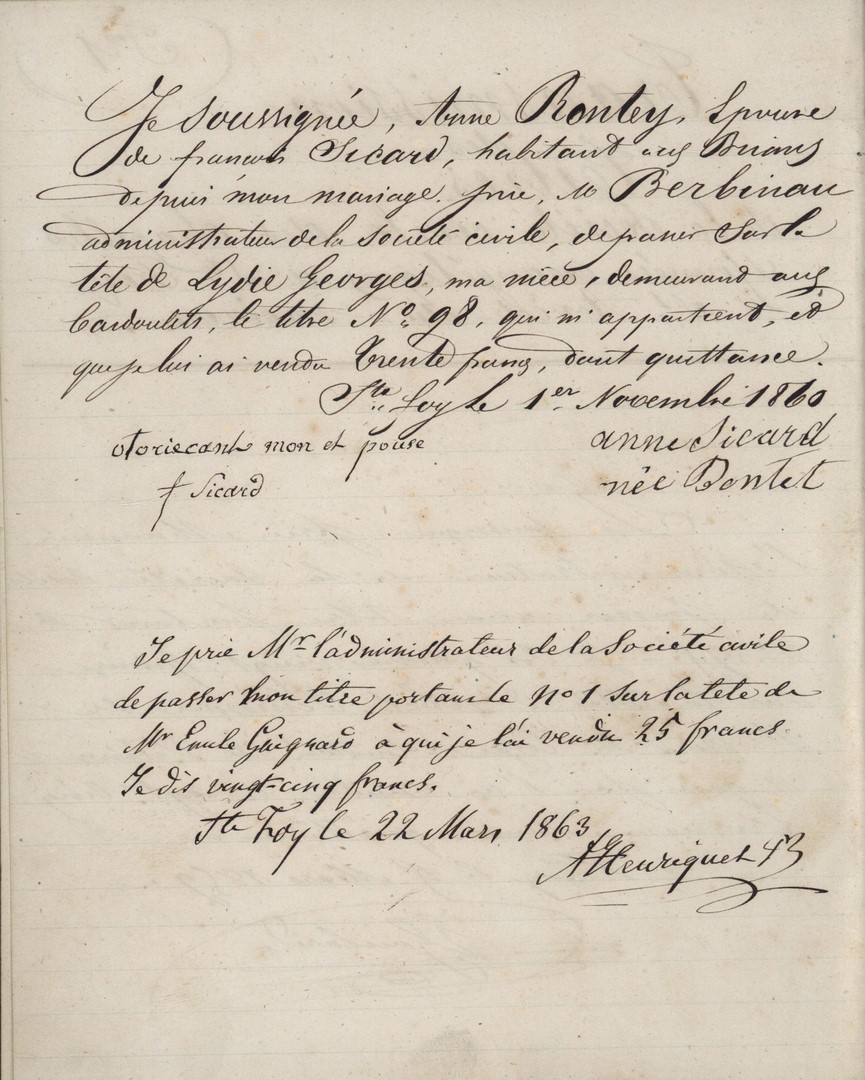 Je soussignée, Anne Rontey, Epouse
de francois Sicard, habitant aux Briands
depuis mon mariage. prie, Mr Berbinau
administrateur de la Société civile, de passer sur la
tête de Lydie Georges, ma nièce, demeurand aux
Bardoulets, le titre No 98, qui m'appartient, et
que je lui ai vendu Trente francs, dont quittance.
Ste Foy le 1er Novembre 1860
otoriecant mon et pouse
anne Sicard
f Sicard
née Pontet
Je prie Mr l'administrateur de la Société civile
de passer mon titre portant le no 1 sur la tete de
Mr Emile Guignard à qui je l'ai vendu 25 francs.
Je dis vingt-cinq francs.
Ste Foy le 22 Mars 1863
AHenriquet